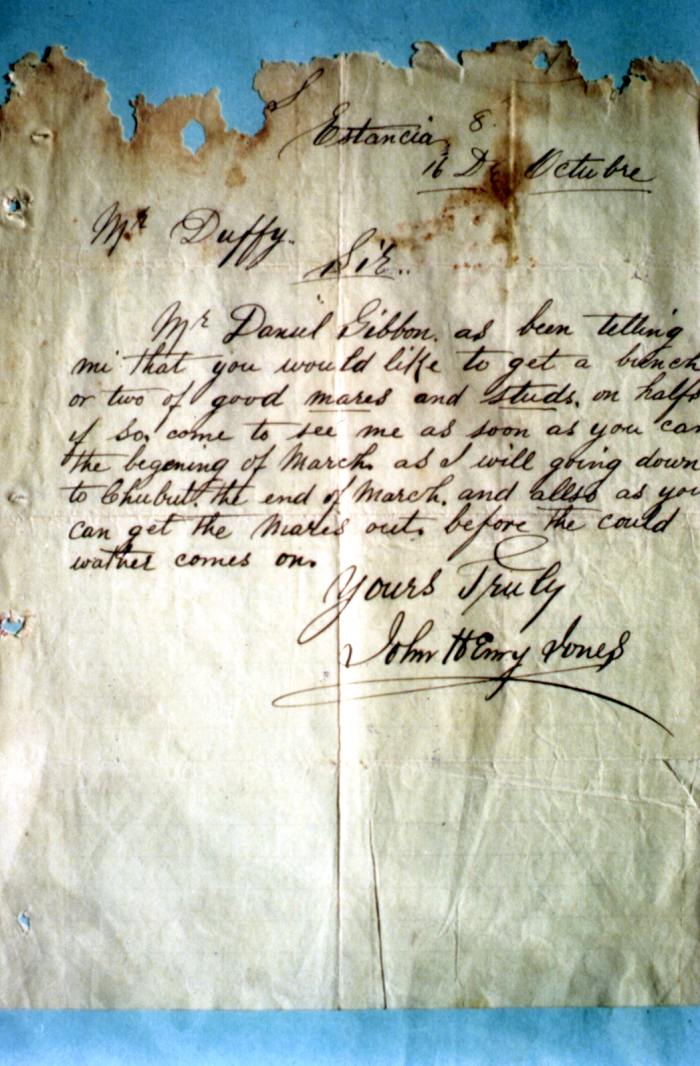 Estancia 8.
16 De Octubre
Mr Duffy.
Sir..
Mr Daniel Gibbon. as been telling
mi that you would like to get a bunch
or two of good mares and studs. on halfs
if so, come to see me as soon as you can
the begening of March. as I will going down
to Chubut. the end of March. and allso as you
can get the Mares out. before the could
wather comes on.
Yours Truly
John Henry Jones